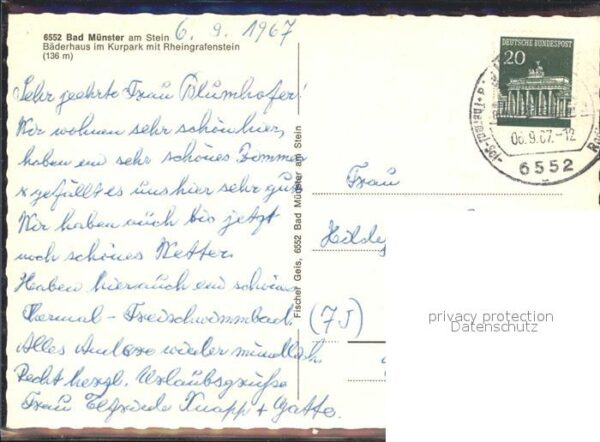 6552 Bad Münster am Stein
Bäderhaus im Kurpark mit Rheingrafenstein
(136 m)
6. 9. 1967
Sehr geehrte Frau Blumhofer!
Wir wohnen sehr schön hier,
haben ein sehr schönes Zimmer
x gefällt es uns hier sehr gut
Wir haben auch bis jetzt
noch schönes Wetter.
Haben hier auch ein schönes
Thermal-Freischwimmbad.
Alles Andere wieder mündlich
Recht herzl. Urlaubsgrüße
Frau Elfriede Knapp + Gatte.
Fischer Geis, 6552 Bad Münster am Stein
DEUTSCHE BUNDESPOST
20
06.9.67.-12
6552
Frau
Hildeg
(7J)
privacy protection
Datenschutz